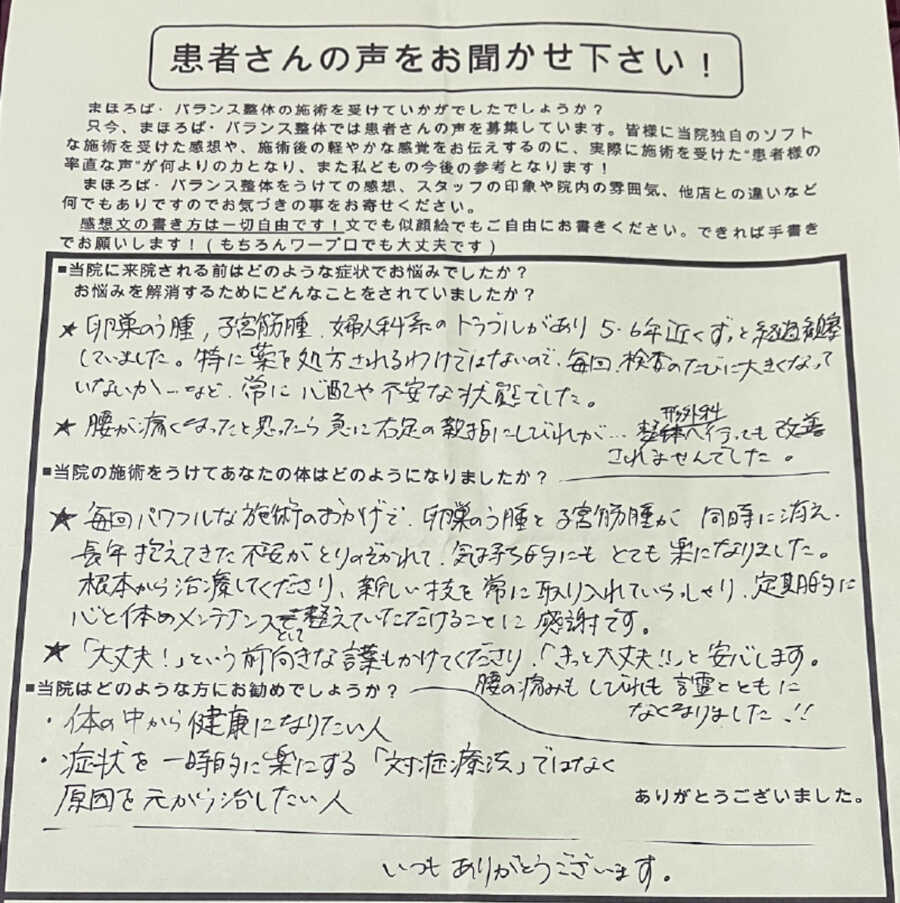 患者さんの声をお聞かせ下さい！
まほろば・バランス整体の施術を受けていかがでしたでしょうか？
只今、まほろば・バランス整体では患者さんの声を募集しています。皆様に当院独自のソフト
な施術を受けた感想や、施術後の軽やかな感覚をお伝えするのに、実際に施術を受けた“患者様の
率直な声”が何よりの力となり、また私どもの今後の参考となります！
まほろば・バランス整体をうけての感想、スタッフの印象や院内の雰囲気、他店との違いなど
何でもありですのでお気づきの事をお寄せください。
感想文の書き方は一切自由です！文でも似顔絵でもご自由にお書きください。できれば手書き
でお願いします！(もちろんワープロでも大丈夫です)
■当院に来院される前はどのような症状でお悩みでしたか？
お悩みを解消するためにどんなことをされていましたか？
★ 卵巣のう腫，子宮筋腫．婦人科系のトラブルがあり 5・6年近くずっと経過観察
していました。特に薬を処方されるわけではないので、毎回、検査のたびに大きくなって
いないか…など、常に心配や不安な状態でした。
★ 腰が痛くなったと思ったら急に右足の親指にしびれが… 整形外科へ行っても改善
されませんでした。
■当院の施術をうけてあなたの体はどのようになりましたか？
★ 毎回パワフルな施術のおかげで、卵巣のう腫と子宮筋腫が 同時に消え、
長年抱えてきた不安がとりのぞかれて、気持ち的にもとても楽になりました。
根本から治療してくださり、新しい技を常に取り入れていらっしゃり、定期的に
心と体のメンテナンスとして整えていただけることに感謝です。
★「大丈夫！」という前向きな言葉もかけてくださり、「きっと大丈夫!!」と安心します。
腰の痛みもしびれも言霊とともに
なくなりました!!
■当院はどのような方にお勧めでしょうか？
・体の中から健康になりたい人
・症状を一時的に楽にする「対症療法」ではなく
原因を元から治したい人
ありがとうございました。
いつもありがとうございます。